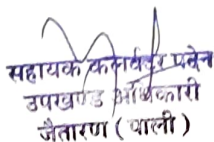 सहायक कलेक्टर एवं
उपखण्ड अधिकारी
जैतारण ( पाली )